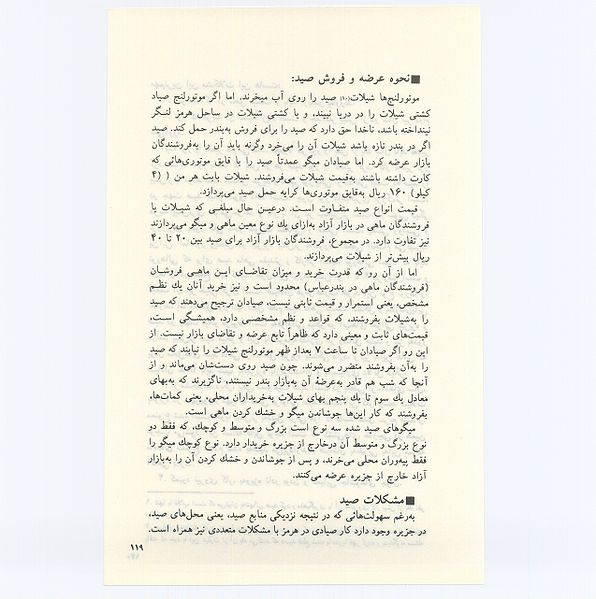 ■ نحوه عرضه و فروش صید:
موتورلنج‌ها شیلات(۱۰) صید را روی آب میخرند. اما اگر موتورلنج صیاد
کشتی شیلات را در دریا نبیند، و یا کشتی شیلات در ساحل هرمز لنگر
نینداخته باشد، ناخدا حق دارد که صید را برای فروش به‌بندر حمل کند. صید
اگر در بندر تازه باشد شیلات آن را می‌خرد وگرنه باید آن را به‌فروشندگان
بازار عرضه کرد. اما صیادان میگو عمدتاً صید را با قایق موتوری‌هائی که
کارت داشته باشند به‌قیمت شیلات می‌فروشند. شیلات بابت هر من ( (۴
کیلو) ۱۶۰ ریال به‌قایق موتوری‌ها کرایه حمل صید می‌پردازد.
قیمت انواع صید متفاوت است. درعین حال مبلغی که شیلات یا
فروشندگان ماهی در بازار آزاد به‌ازای یك نوع معین ماهی و میگو می‌پردازند
نیز تفاوت دارد. در مجموع، فروشندگان بازار آزاد برای صید بین ۲۰ تا ۴۰
ریال بیش‌تر از شیلات می‌پردازند.
اما از آن رو که قدرت خرید و میزان تقاضای ایـن ماهـی فروشـان
(فروشندگان ماهی در بندرعباس) محدود است و نیز خرید آنان یك نظـم
مشخص، یعنی استمرار و قیمت ثابتی نیست، صیادان ترجیح می‌دهند که صید
را به‌شیلات بفروشند، که قواعد و نظم مشخصـی دارد، همیشـگی اسـت،
قیمت‌های ثابت و معینی دارد که ظاهراً تابع عرضه و تقاضای بازار نیست. از
این رو اگر صیادان تا ساعت ۷ بعداز ظهر موتورلنج شیلات را نیابند که صید
را به‌آن بفروشند متضرر می‌شوند. چون صید روی دست‌شان می‌ماند و از
آنجا که شب هم قادر به‌عرضهٔ آن به‌بازار بندر نیستند، ناگزیرند که به‌بهای
معادل یك سوم تا یك پنجم بهای شیلات به‌خریداران محلی، یعنی کمات‌ها،
بفروشند که کار این‌ها جوشاندن میگو و خشك کردن ماهی است.
میگوهای صید شده سه نوع است بزرگ و متوسط و کوچك، که فقط دو
نوع بزرگ و متوسط آن درخارج از جزیره خریدار دارد. نوع کوچك میگو را
فقط پیه‌وران محلی می‌خرند، و پس از جوشاندن و خشك کردن آن را به‌بازار
آزاد خارج از جزیره عرضه می‌کنند.
■ مشکلات صید
به‌رغم سهولت‌هائی که در نتیجه نزدیکی منابع صید، یعنی محل‌های صید،
در جزیره وجود دارد کار صیادی در هرمز با مشکلات متعددی نیز همراه است.
۱۱۹